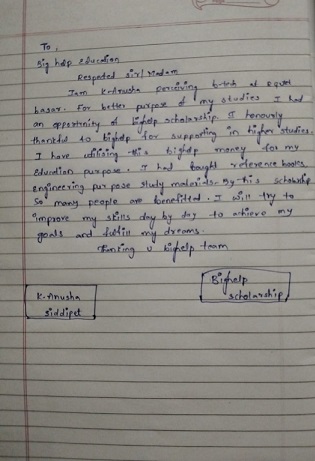 To,
Big help education
Respected sir/Madam
Iam K-Anusha perseiving b-tech at rgukt
basar. For better purpose of my studies I had
an oppertinity of bighelp scholarship. I honourly
thankful to bighelp for supporting in higher studies.
I have utilising this bighelp money for my
education purpose. I had bought reference books,
engineering purpose study materials. By this scholarship
so many people are benefitted. I will try to
improve my skills day by day to achieve my
goals and fulfill my dreams.
Thinking u bighelp team
K-Anusha
Siddipet
Bighelp
scholarship